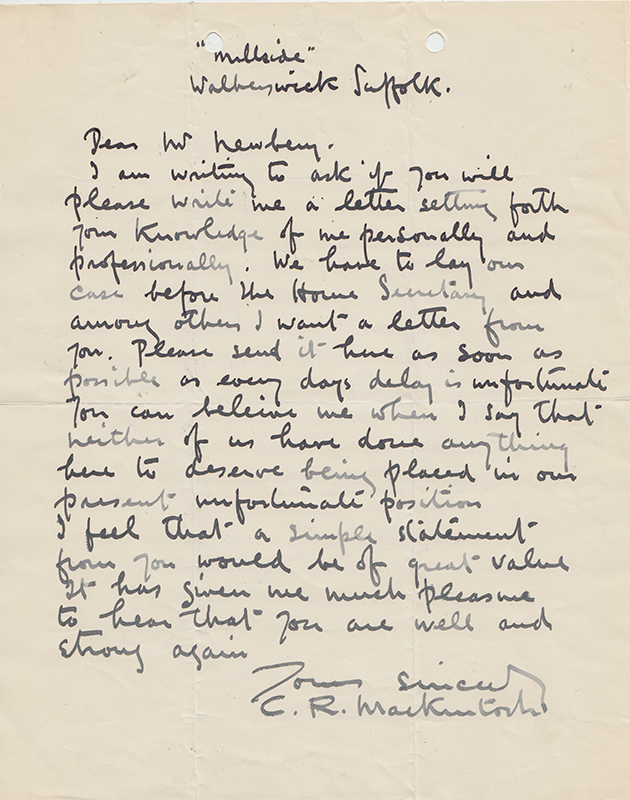 "Millside"
Walberswick Suffolk.
Dear Mr Newbery.
I am writing to ask if you will
please write me a letter setting forth
your knowledge of me personally and
professionally. We have to lay our
case before the Home Secretary and
among others I want a letter from
you. Please send it here as soon as
possible as every days delay is unfortunate
You can beleive me when I say that
neither of us have done anything
here to deserve being placed in our
present unfortunate position
I feel that a simple statement
from you would be of great value
It has given me much pleasure
to hear that you are well and
strong again
Yours sincerely
C. R. Mackintosh